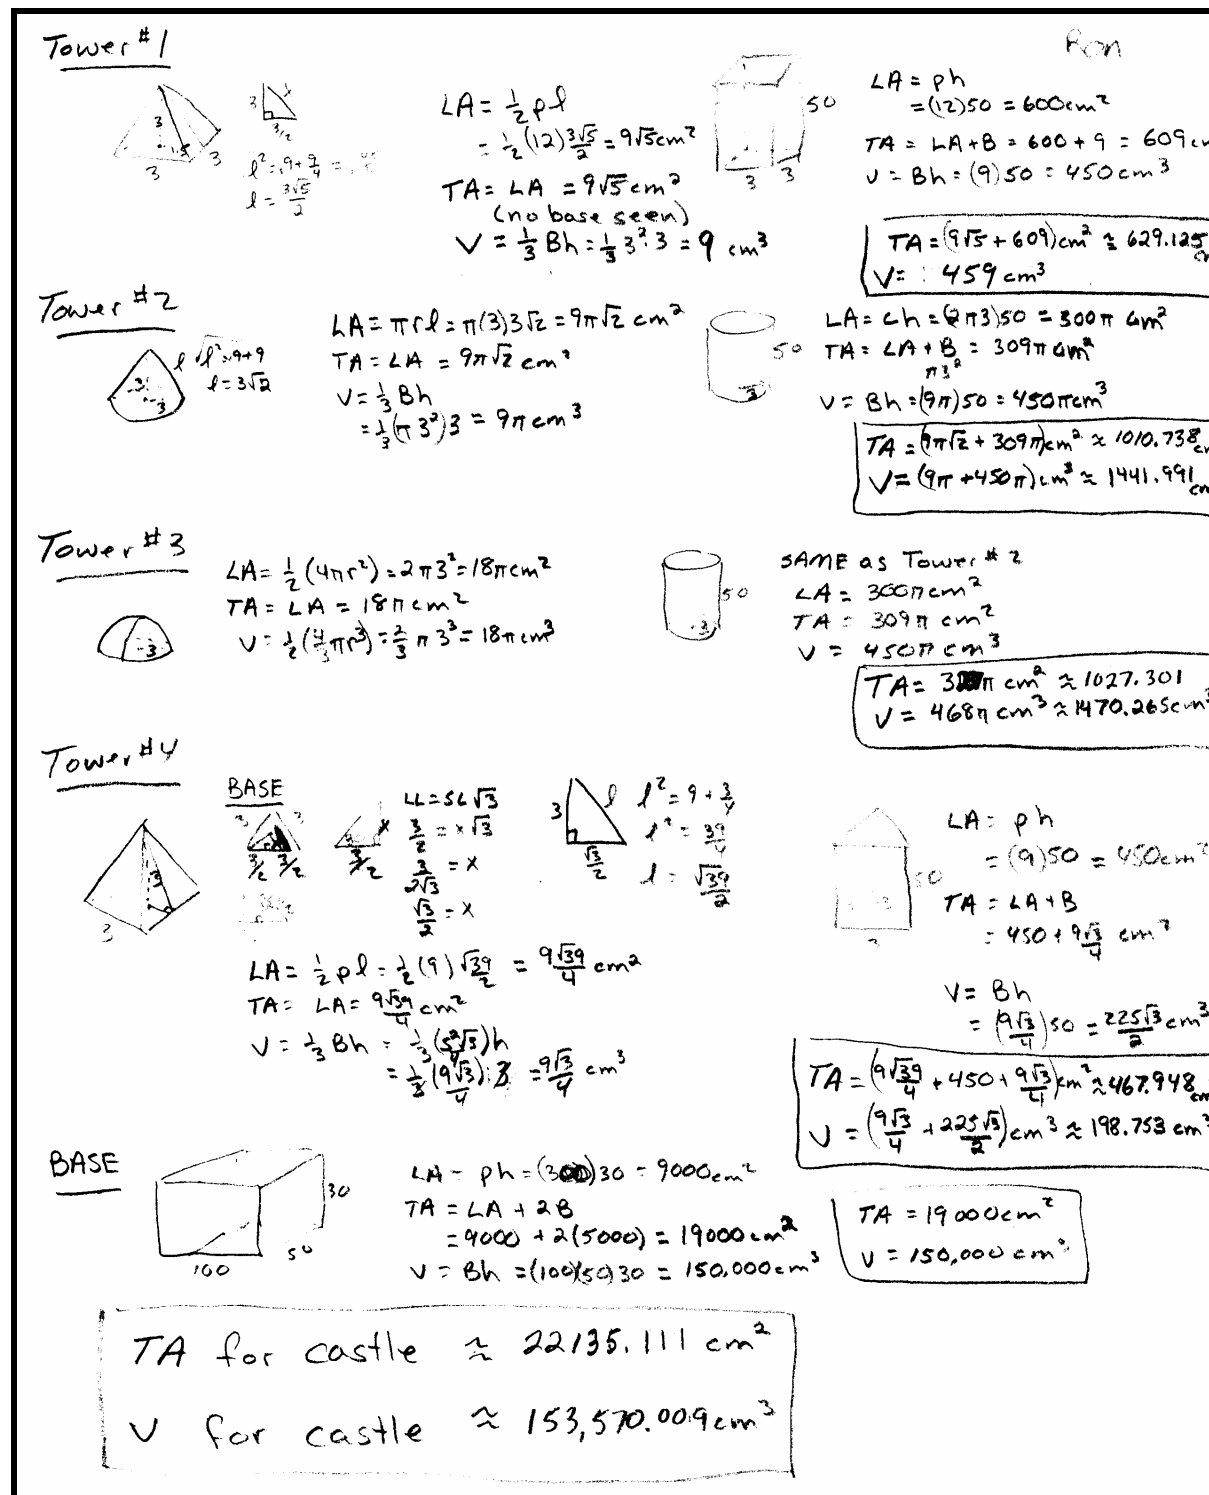 Ron
Tower #1
3
3
1.5
3
3
3/2
l² = 9 + 9/4 =
l = 3√5/2
LA = ½ p l
= ½ (12) 3√5/2 = 9√5 cm²
TA = LA = 9√5 cm²
(no base seen)
V = ⅓ Bh = ⅓ 3²·3 = 9 cm³
50
3 3
LA = ph
= (12)50 = 600 cm²
TA = LA + B = 600 + 9 = 609 cm
V = Bh = (9)50 = 450 cm³
TA = (9√5 + 609) cm² ≈ 629.125
V = 459 cm³
Tower #2
3
3
l
l² = 9+9
l = 3√2
LA = πrl = π(3)3√2 = 9π√2 cm²
TA = LA = 9π√2 cm²
V = ⅓ Bh
= ⅓(π3²)3 = 9π cm³
50
3
LA = ch = (2π3)50 = 300π cm²
TA = LA + B = 309π cm²
π3²
V = Bh = (9π)50 = 450π cm³
TA = (9π√2 + 309π) cm² ≈ 1010.738 cm
V = (9π + 450π) cm³ ≈ 1441.991 cm
Tower #3
3
LA = ½ (4πr²) = 2π3² = 18π cm²
TA = LA = 18π cm²
V = ½(4/3 πr³) = ⅔ π 3³ = 18π cm³
50
3
SAME as Tower #2
LA = 300π cm²
TA = 309π cm²
V = 450π cm³
TA = π cm² ≈ 1027.301
V = 468π cm³ ≈ 1470.265 cm³
Tower #4
3
3
BASE
3 3
3/2 3/2
x
3/2
LL = SL√3
3/2 = x√3
3/2√3 = x
√3/2 = x
3
l
√3/2
l² = 9 + 3/4
l² = 39/4
l = √39/2
LA = ½ p l = ½ (9) √39/2 = 9√39/4 cm²
TA = LA = 9√39/4 cm²
V = ⅓ Bh = ⅓ (s²√3/4)h
= ⅓ (9√3/4)·3 = 9√3/4 cm³
50
3
LA = ph
= (9)50 = 450 cm²
TA = LA + B
= 450 + 9√3/4 cm²
V = Bh
= (9√3/4)50 = 225√3/2 cm³
TA = (9√39/4 + 450 + 9√3/4) cm² ≈ 467.948 cm
V = (9√3/4 + 225√3/2) cm³ ≈ 198.753 cm³
BASE
30
50
100
LA = ph = (300)30 = 9000 cm²
TA = LA + 2B
= 9000 + 2(5000) = 19000 cm²
V = Bh = (100)(50)30 = 150,000 cm³
TA = 19000 cm²
V = 150,000 cm³
TA for castle ≈ 22135.111 cm²
V for castle ≈ 153,570.009 cm³